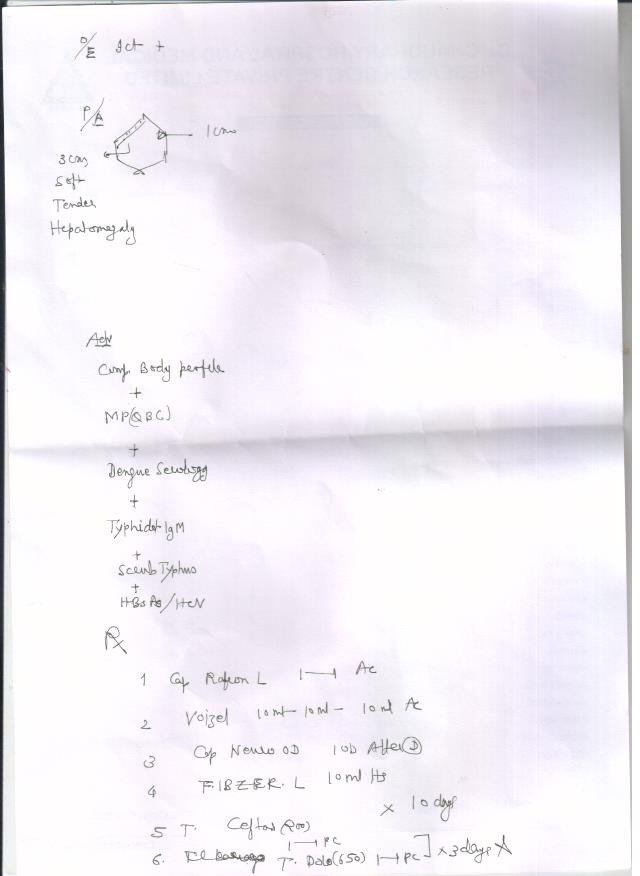 O/E Ict +
P/A
1 cm
3 cms
Soft
Tender
Hepatomegaly
Adv
Comp. Body profile
+
MP(QBC)
+
Dengue Serology
+
Typhidot IgM
+
Scrub Typhus
+
HBsAg/HCV
Rx
1 Cap L 1—1 Ac
2 10ml— 10ml— 10ml Ac
3 Cap Neuro OD 1 OD After D
4 L 10ml Hs
x 10 days
5 T. Ceftas (200)
1—1 PC
6. T. Dolo(650) 1—1 PC ] x 3 days